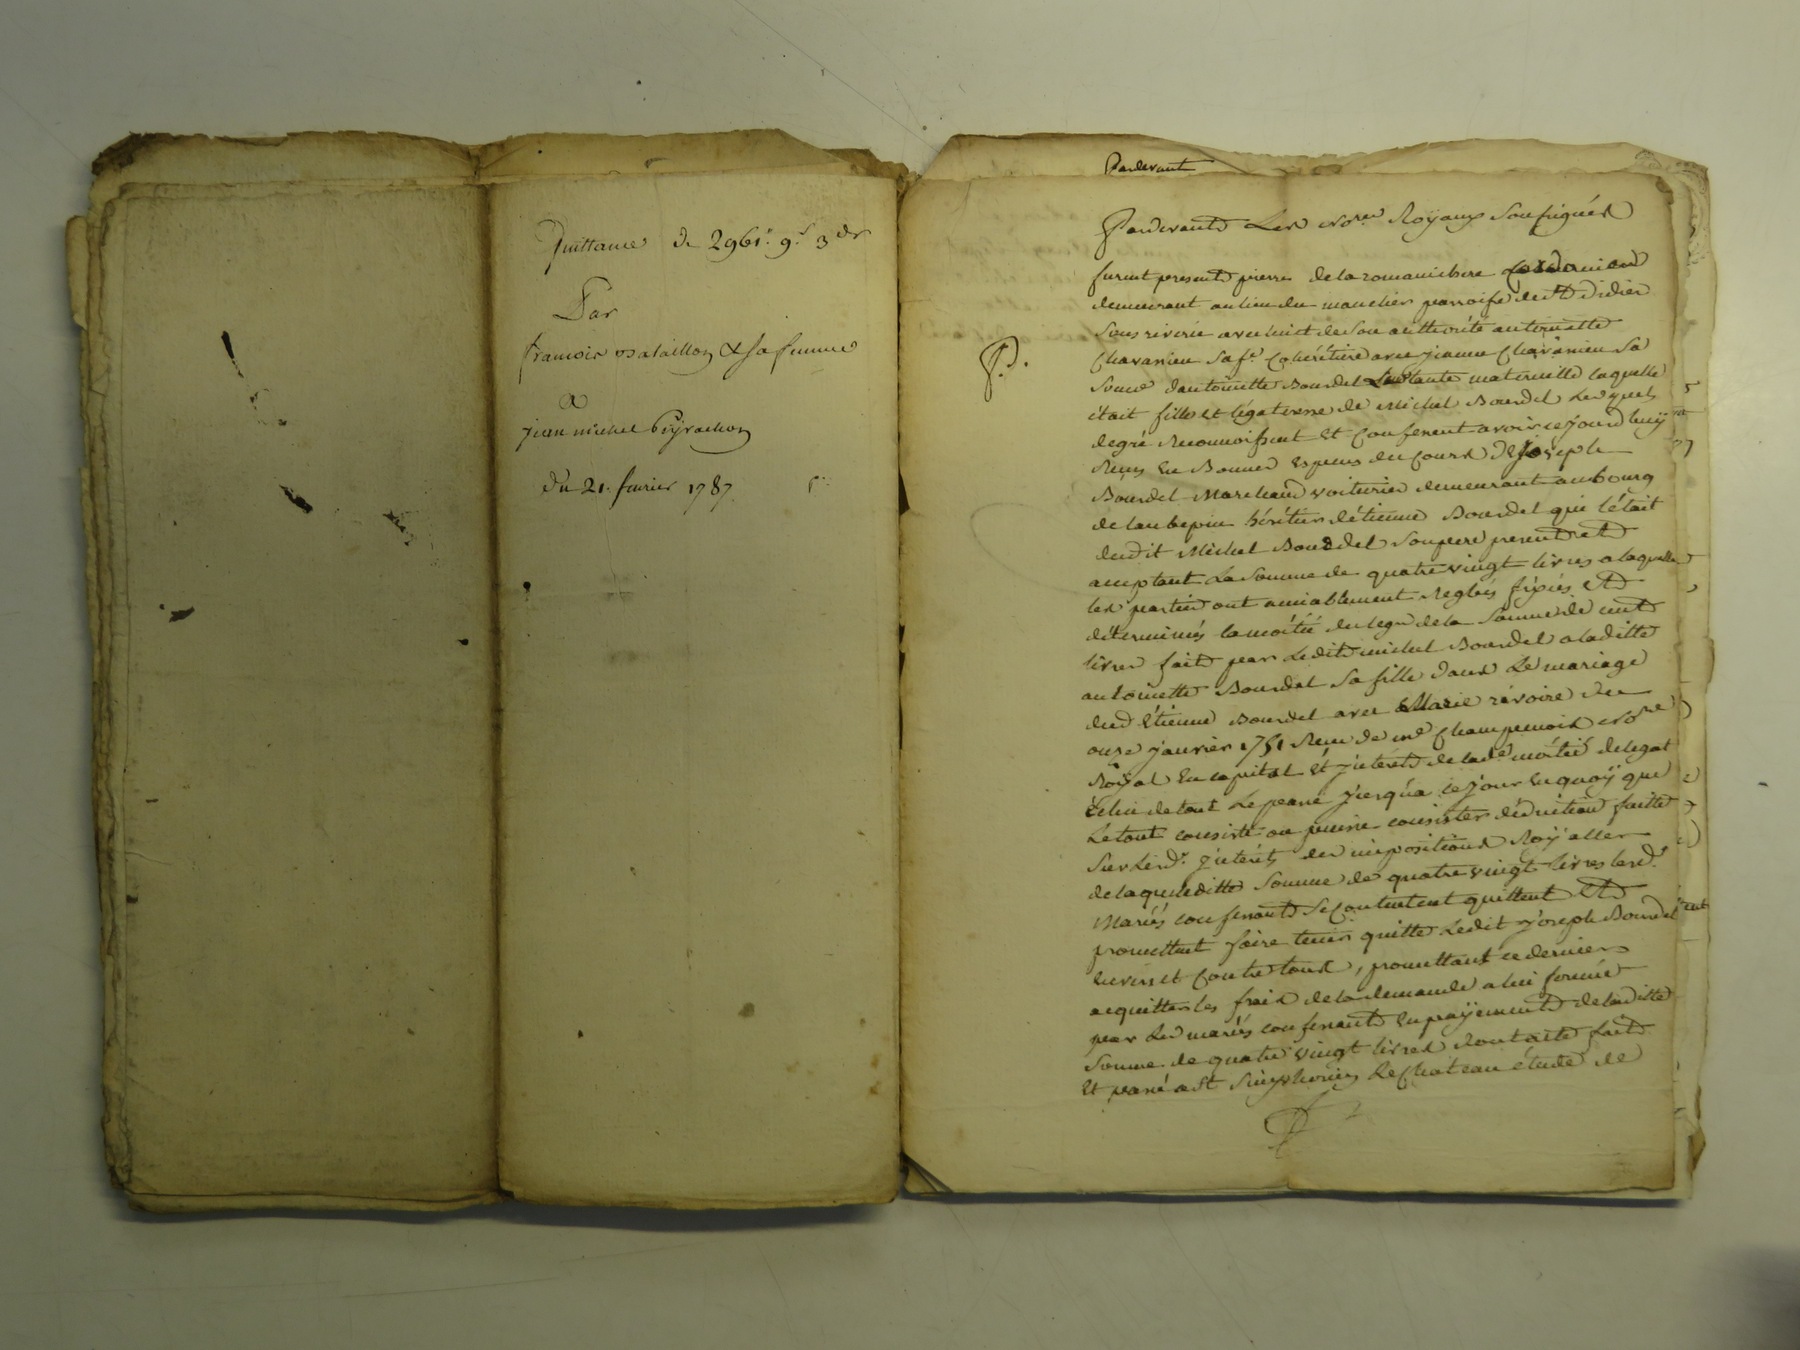 Quittance de 296lt. 9s. 3drs
Par
francois Bataillon & sa femme
a
jean michel Peyrachon
du 21. fevrier 1787.
Pardevant
Pardevants Les No.res Royaux soussignés
furent presents pierre de la romanichere
demeurant au lieu du manchier parroisse de St Didier
sous riverie avec luict de son authorité antoinette
Chavanieu sa fe. Cohéritiere avec jeanne Chavanieu sa
P.
soeur dantoinette Bourdel Leur tante maternelle laquelle
était fille et légataire de Michel Bourdel Lesquels
degré reconnoissent et Confessent avoir cejourdhuy
Reçus en Bonnes especes du Cours De joseph
Bourdel Marchand voiturier demeurant au bourg
de laubepin héritier détienne Bourdel qui l'était
dudit Michel Bourdel son pere present et
acceptant La somme de quatre vingt livres a laquelle
les parties ont amiablement Reglés fixés Et
déterminés la moitié du legs de la somme de cent
livres fait par Ledit michel Bourdel a laditte
antoinette Bourdel sa fille dans Le mariage
dud étienne Bourdel avec Marie revoire du
onze janvier 1751 Reçu de me Champenois No.re
Royal en capital Et jnteréts de lade. moitié de legat
Echu de tout Le passé jusqua ce jour En quoy que
Le tout consiste ou puisse consister déduction faitte
sur Lesd. jnteréts des impositions Royalles
de laquelleditte somme de quatre vingt livres lesd.
Mariés confessants se Contentent quittent Et
promettent faire tenir quitte Ledit joseph Bourdel
Envers et Contre tous, promettant ce dernier
acquitter les frais de la demande a lui formée
par Les mariés confessants En payement de laditte
somme de quatre vingt livres dont acte fait
Et passé a St Simphorien Le Chateau étude de